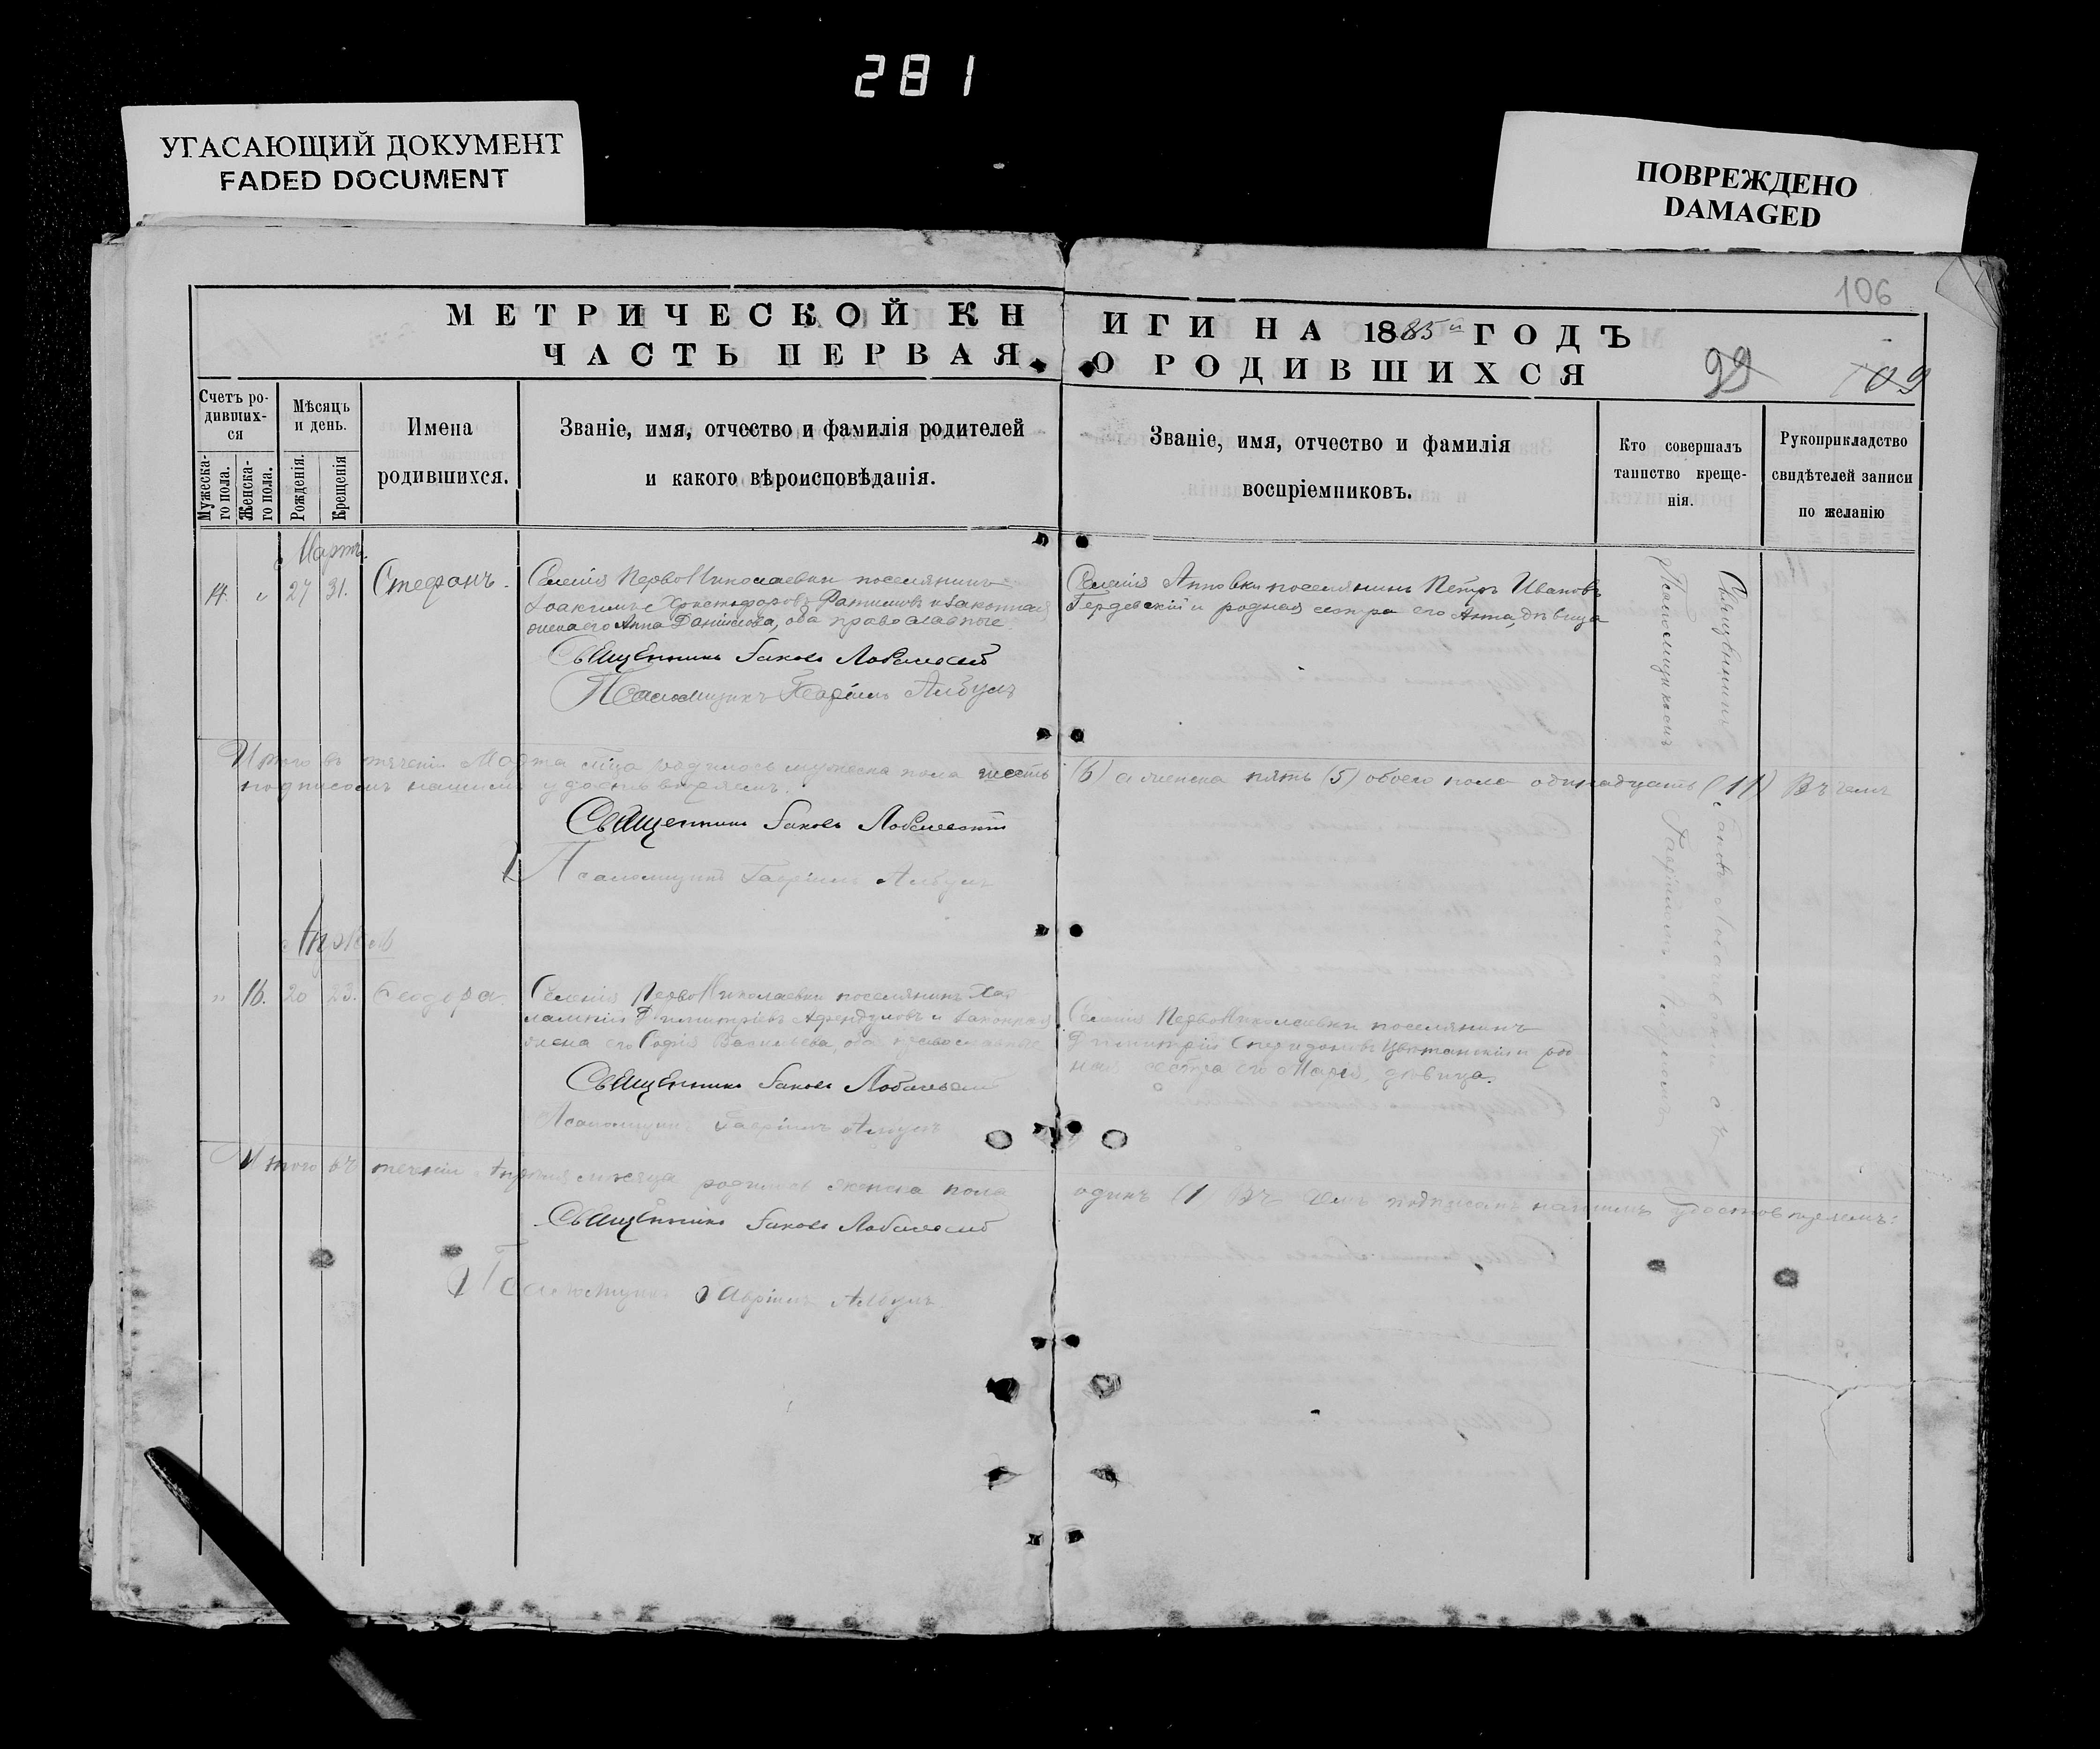 281
УГАСАЮЩИЙ ДОКУМЕНТ
FADED DOCUMENT
ПОВРЕЖДЕНО
DAMAGED
106
МЕТРИЧЕСКОЙ КНИГИ НА 1885й ГОДЪ
ЧАСТЬ ПЕРВАЯ, О РОДИВШИХСЯ
99
109
Счетъ ро-
дивших-
ся
Мужеска-
го пола.
Женска-
го пола.
Мѣсяцъ
и день.
Рожденія.
Крещенія
Имена
родившихся.
Званіе, имя, отчество и фамилія родителей
и какого вѣроисповѣданія.
Званіе, имя, отчество и фамилія
воспріемниковъ.
Кто совершалъ
таинство креще-
нія.
Рукоприкладство
свидѣтелей записи
по желанію
Мартъ.
14. " 27 31. Стефанъ.
Селенія Перво Николаевки поселянинъ
Іоакимъ Христофоровъ и законная
жена его Анна Данилова, оба православные
Священникъ Іаковъ
Псаломщикъ Гавріилъ Албулъ
Селенія поселянинъ Петръ Ивановъ
и родная сестра его Анна, дѣвица
Священникъ Іаковъ
Псаломщикомъ Гавріиломъ
Итого въ теченіи Марта м̃ца родилось мужеска пола шесть (6) а женска пять (5) обоего пола одинадцать (11) Въ чемъ
подписомъ нашимъ удостовѣряемъ.
Священникъ Іаковъ
Псаломщикъ Гавріилъ Албулъ
Апрѣль
" 16. 20 23. Феодора.
Селенія Перво Николаевки поселянинъ Хар
лампій Димитріевъ Афендуловъ и законная
жена его Софія Васильева, оба православные
Священникъ Іаковъ
Псаломщикъ Гавріилъ Албулъ
Селенія Перво Николаевки поселянинъ
Димитрій Спиридоновъ и род
ная сестра его Марія, дѣвица.
Итого въ теченіи Апрѣля мѣсяца родилось женска пола
одинъ (1 Въ чемъ подписомъ нашимъ удостовѣряемъ:
Священникъ Іаковъ
Псаломщикъ Гавріилъ Албулъ